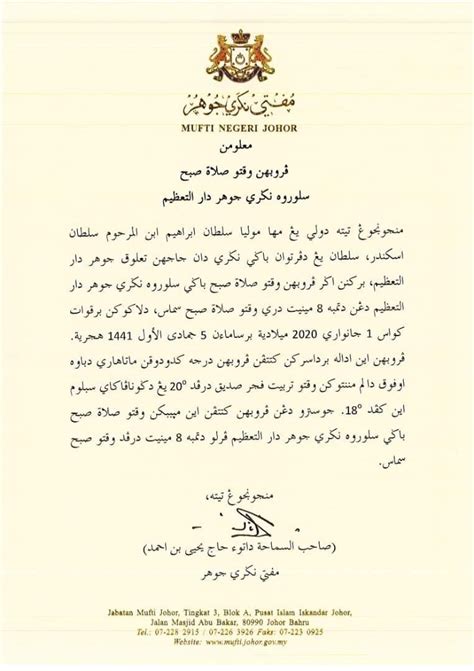 مفتي نڬري جوهر
MUFTI NEGERI JOHOR
معلومن
ڤروبهن وقتو صلاة صبح
سلوروه نڬري جوهر دار التعظيم
منجونجوڠ تيته دولي يڠ مها موليا سلطان ابراهيم ابن المرحوم سلطان
اسكندر، سلطان يڠ دڤرتوان باڬي نڬري دان جاجهن تعلوق جوهر دار
التعظيم، بركنن اڬر ڤروبهن وقتو صلاة صبح باڬي سلوروه نڬري جوهر دار
التعظيم دڠن دتمبه 8 مينيت دري وقتو صلاة صبح سماس، دلاكوكن برقوات
كواس 1 جانواري 2020 ميلادية برساماءن 5 جمادى الأول 1441 هجرية.
ڤروبهن اين اداله برداسركن كتتڤن ڤروبهن درجه كدودوقن ماتاهاري دباوه
اوفوق دالم مننتوكن وقتو تربيت فجر صديق درڤد °20 يڠ دڬوناڤاكاي سبلوم
اين كڤد °18. جوسترو دڠن ڤروبهن كتتڤن اين مڽببكن وقتو صلاة صبح
باڬي سلوروه نڬري جوهر دار التعظيم ڤرلو دتمبه 8 مينيت درڤد وقتو صبح
سماس.
منجونجوڠ تيته،
(صاحب السماحة داتوء حاج يحيى بن احمد)
مفتي نڬري جوهر
Jabatan Mufti Johor, Tingkat 3, Blok A, Pusat Islam Iskandar Johor,
Jalan Masjid Abu Bakar, 80990 Johor Bahru
Tel.: 07-228 2915 / 07-226 3926 Faks: 07-223 0925
Website: www.mufti.johor.gov.my